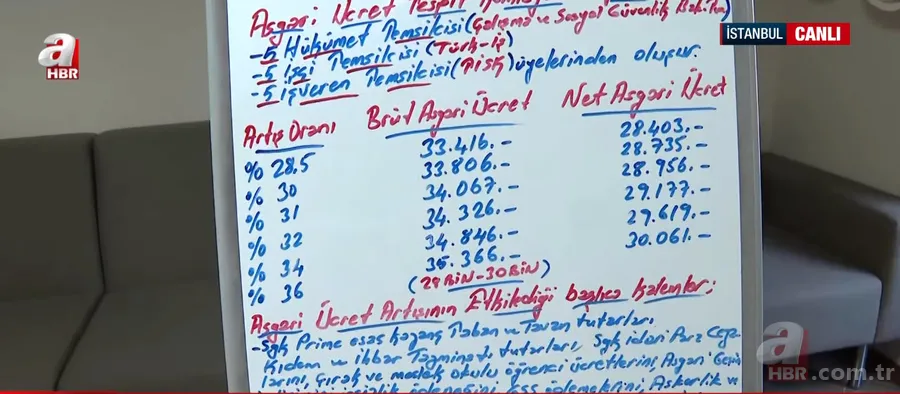 Asgari Ücret Tespit
-5 Hükümet Temsilcisi (Çalışma ve Sosyal Güvenlik Bak.
-5 İşçi Temsilcisi (Türk-iş)
-5 işveren Temsilcisi (TİSK) üyelerinden oluşur.
Artış Oranı Brüt Asgari Ücret Net Asgari Ücret
% 28.5 33.416.- 28.403.-
% 30 33.806.- 28.735.-
% 31 34.067.- 28.956.-
% 32 34.326.- 29.177.-
% 34 34.846.- 29.619.-
% 36 35.366.- 30.061.-
(28 BİN-30 BİN)
Asgari Ücret Artışının Etkilediği başlıca kalemler;
-Sgk Prime esas kazanç Taban ve Tavan tutarları,
Kıdem ve ihbar Tazminatı tutarları, Sgk idari Para Ceza
larını, Çırak ve meslek okulu öğrenci ücretlerini, Asgari
işsizlik ödeneğini, ödemelerini, Askerlik ve
a
HBR
İSTANBUL CANLI
a
HBR.com.tr